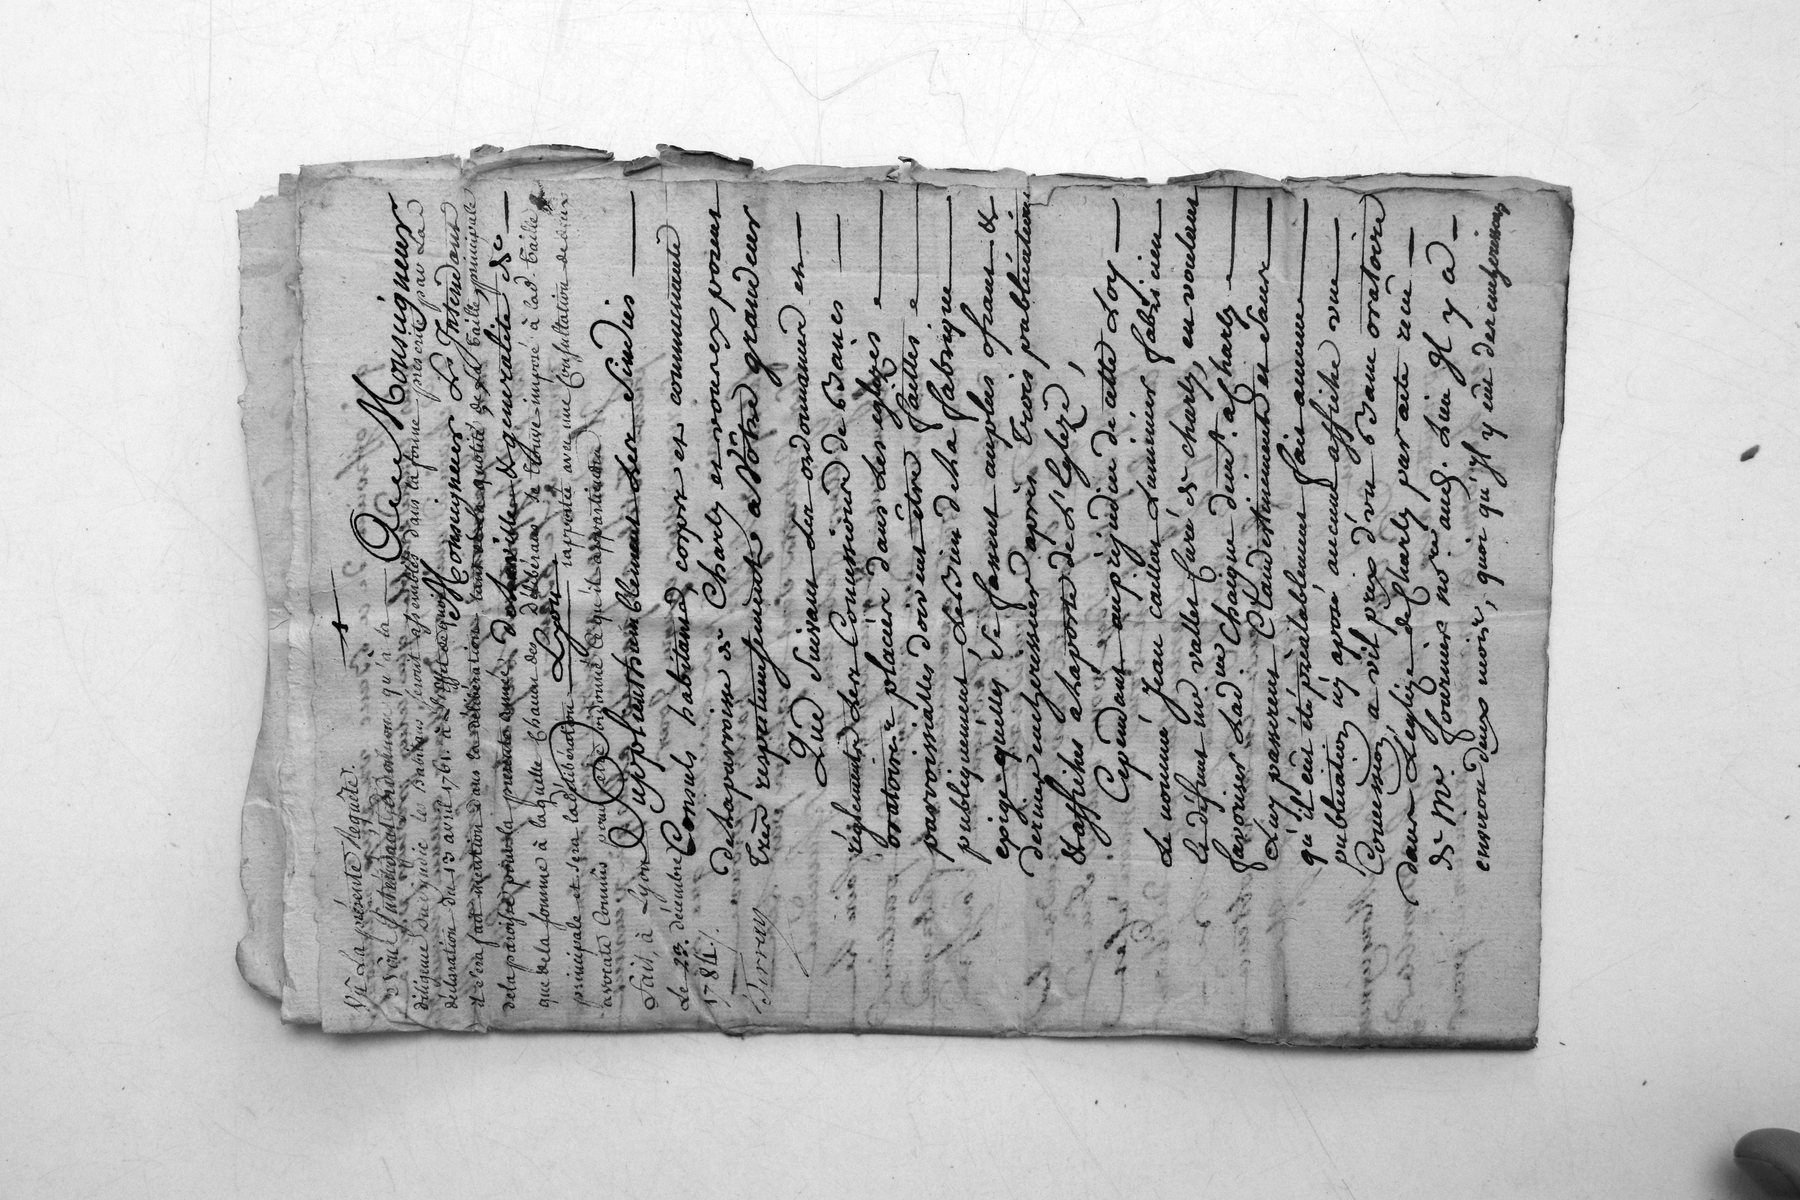 Vû la présente Requête.
Nous Intendant ordonnons qu'à la
diligence du sindic les habitans seront assemblés dans la forme prescrite par la
déclaration du 13 avril 1761. à l'effet de quoi
il sera fait mention dans la délibération tant de la quotité de la taille principale
de la paroisse pour la presente année
que de la somme à laquelle chacun des délibérans se trouve imposé à lad. taille
principale et sera lad. délibération rapportée avec une Consultation de deux
avocats Connus pour être ordonné ce qu'il appartiendra
Fait, à Lyon
Le 23. décembre
1784./.
Terray
A Monseigneur
Monseigneur L'Intendant
de la ville & generalité de
Lyon
Supplient humblement Les Sindics
Consuls habitans, corps et communauté
de la parroisse de Charly et vous exposent
tres respectueusement a Votre grandeur
Que Suivant les ordonnances et
réglements les Concessions de Bancs
oratoire placées dans les eglises
parroissialles doivent etre faittes
publiquement, le bien de la fabrique
exige quelles se fassent auplus ofrant &
dernier encherisseur après trois publications
& affiches a la porte de L'Eglize,
Cependant au préjudice de cette Loy
Le nommé Jean caillot Luminier fabricien
le défunt Curé de charly, en voulant
favoriser Lad. a Charly
Luy passerent Clandestinement et Sans
qu'il eut été préalablement fait aucune
publication ny aposé aucune affiche une
Concession a vil prix d'un Banc oratoire
dans L'eglize de Charly par acte reçu
de Mr. fournier nore aud. Lieu Il y a
environ deux mois, quoi qu'il y eut des encherisseurs